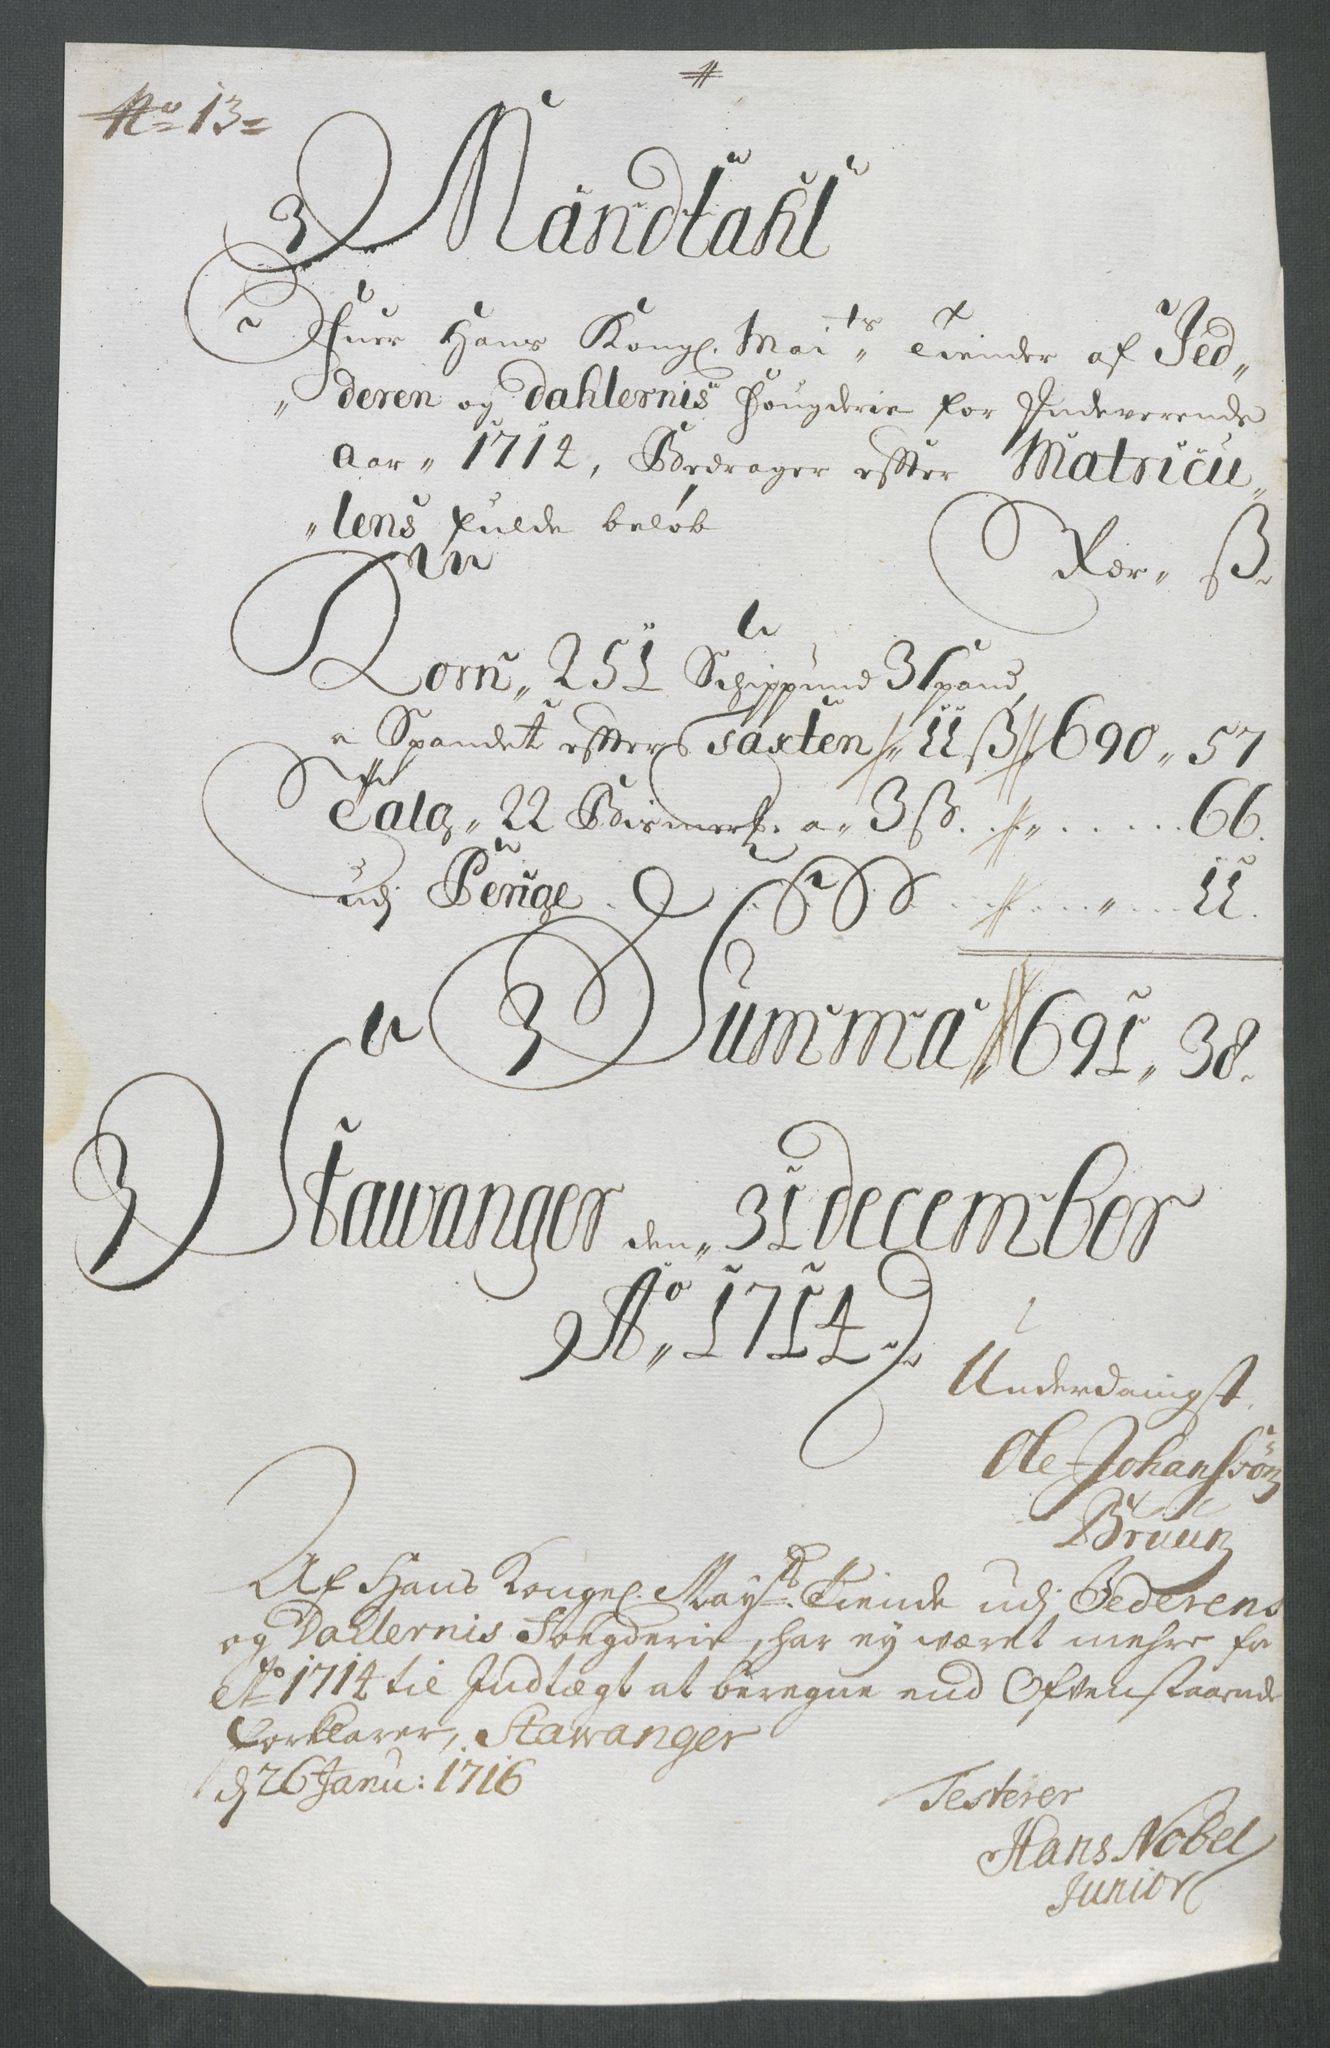 No 13
Mandtahl
Ofuer Hans Kongl. Maits Tiender af Jed
deren og Dahlernis Fougderie for Indeverende
Aar 1714, Bedrager effter Matricu
lens fulde beløb
Rdr ß
Korn 251 Schippund 3 Spand,
a Spandet effter Taxten 11 ß 690 57
Talg 22 Bismerp. a 3 ß 66
udj Penge 11
Summa 691 38
Stawanger den 31 December
Ao 1714
Underdanigst
Ole Johanssön
Bruun
Af Hans Kongel. Mayts. Tiende udj Jederens
og Dallernis Fougderie, har ey været mehre for
Ao 1714 til Indtægt at beregne end Ofvenstaaende
forklarer, Stawanger
d 26 Janu: 1716
Testerer
Hans Nobel
Junior